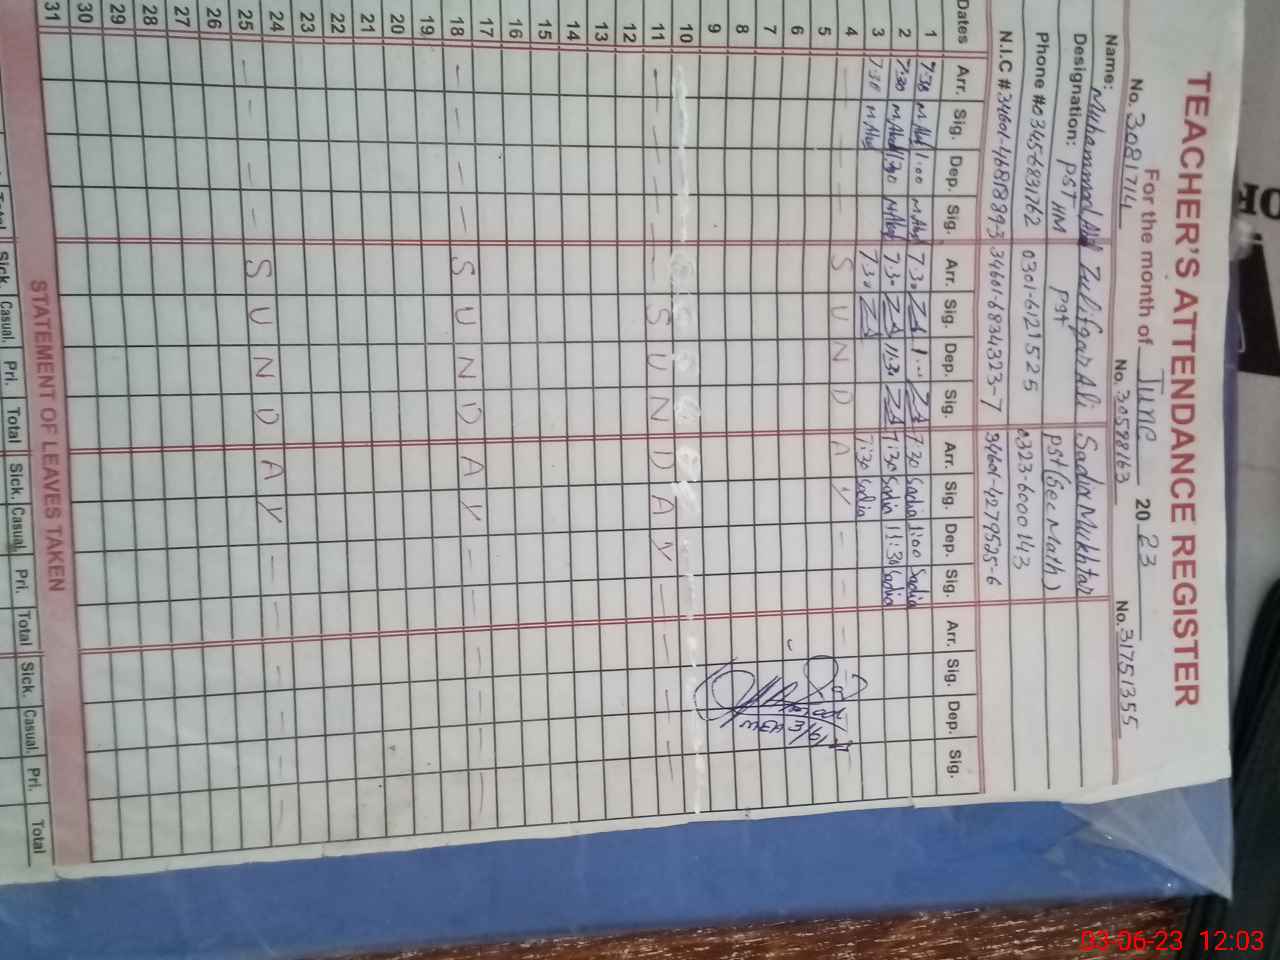 TEACHER'S ATTENDANCE REGISTER
For the month of June 20 23
No. 30817714 No. 30598163 No. 31751355
Name: Muhammad Zulifqar Ali Sadia Mukhtar
Designation: PST HM Pst Pst (Sec Math)
Phone # 03456831762 0301-6121525 0323-6000143
N.I.C # 34601-4681889-3 34601-6834323-7 34601-4279525-6
Dates Arr. Sig. Dep. Sig. Arr. Sig. Dep. Sig. Arr. Sig. Dep. Sig. Arr. Sig. Dep. Sig.
1 7:30 1:00 7:30 1... 7:30 Sadia 1:00 Sadia
2 7:30 11:30 7:30 11:30 7:30 Sadia 11:30 Sadia
3 7:30 7:30 7:30 Sadia
4 SUNDAY
5
6
7
8
9
10
11 SUNDAY
12
13
14
15
16
17
18 SUNDAY
19
20
21
22
23
24
25 SUNDAY
26
27
28
29
30
31
STATEMENT OF LEAVES TAKEN
Total Sick. Casual. Pri. Total Sick. Casual. Pri. Total Sick. Casual. Pri. Total
03-06-23 12:03